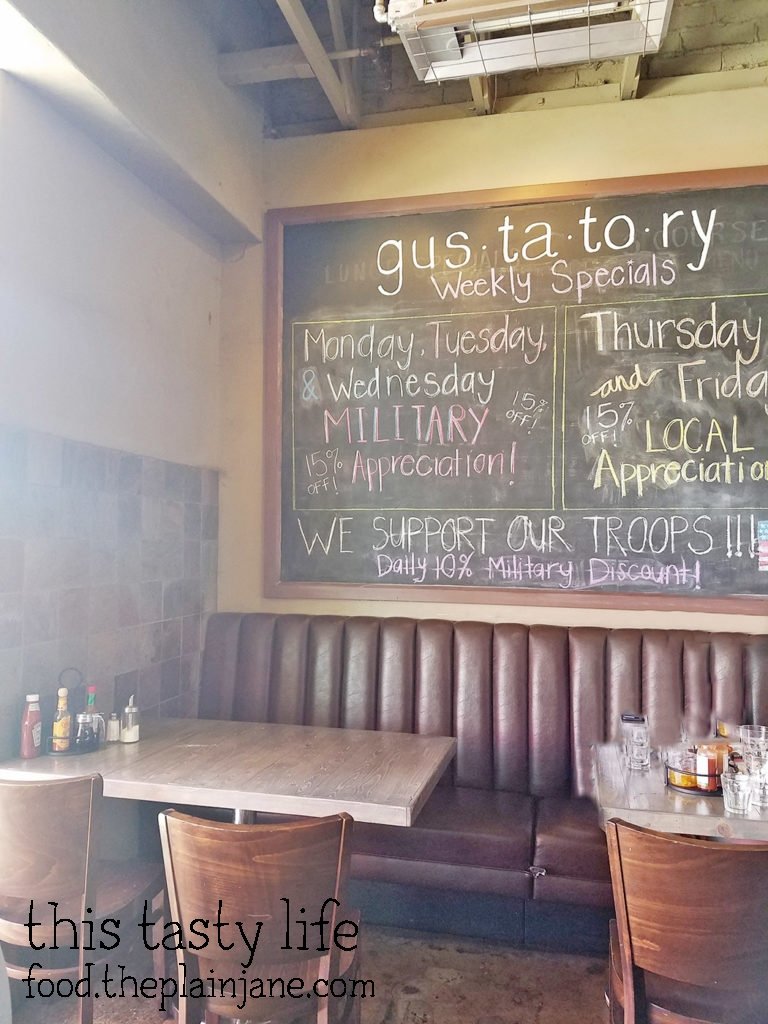 gus·ta·to·ry
Weekly Specials
Monday, Tuesday,
& Wednesday
15%
OFF!
MILITARY
15%
OFF!
Appreciation!
Thursday
and Frida
15%
OFF!
LOCAL
Appreciatio
WE SUPPORT OUR TROOPS!!!
Daily 10% Military Discount!
this tasty life
food.theplainjane.com